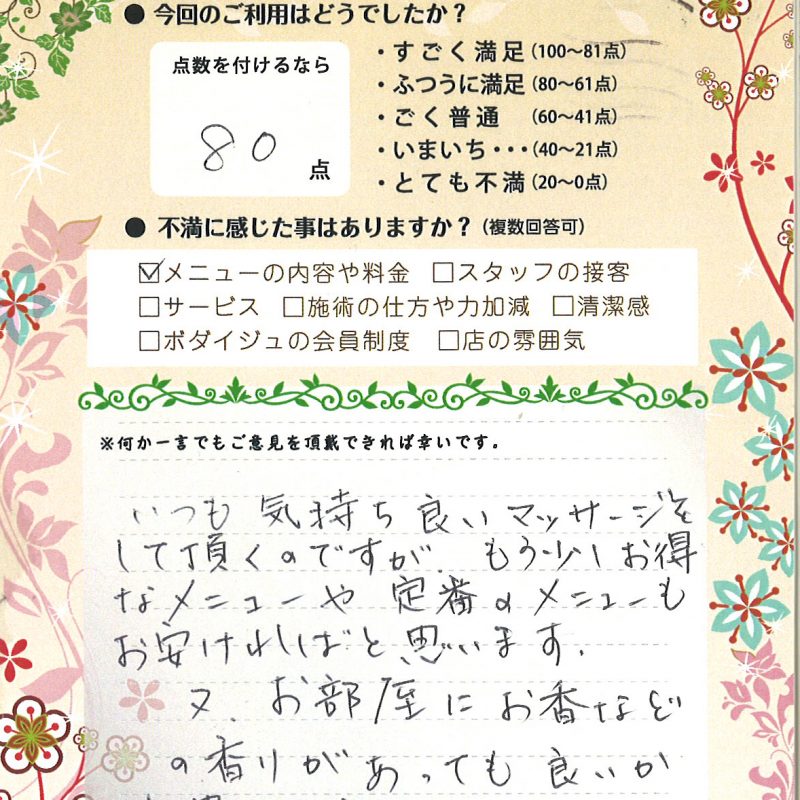 ● 今回のご利用はどうでしたか？
点数を付けるなら
80点
・すごく満足（100～81点）
・ふつうに満足（80～61点）
・ごく普通（60～41点）
・いまいち・・・（40～21点）
・とても不満（20～0点）
● 不満に感じた事はありますか？（複数回答可）
☑メニューの内容や料金 □スタッフの接客
□サービス □施術の仕方や力加減 □清潔感
□ボダイジュの会員制度 □店の雰囲気
※何か一言でもご意見を頂戴できれば幸いです。
いつも気持ち良いマッサージを
して頂くのですが、もう少しお得
なメニューや定番のメニューも
お安ければと思います。
又、お部屋にお香など
の香りがあっても良いか